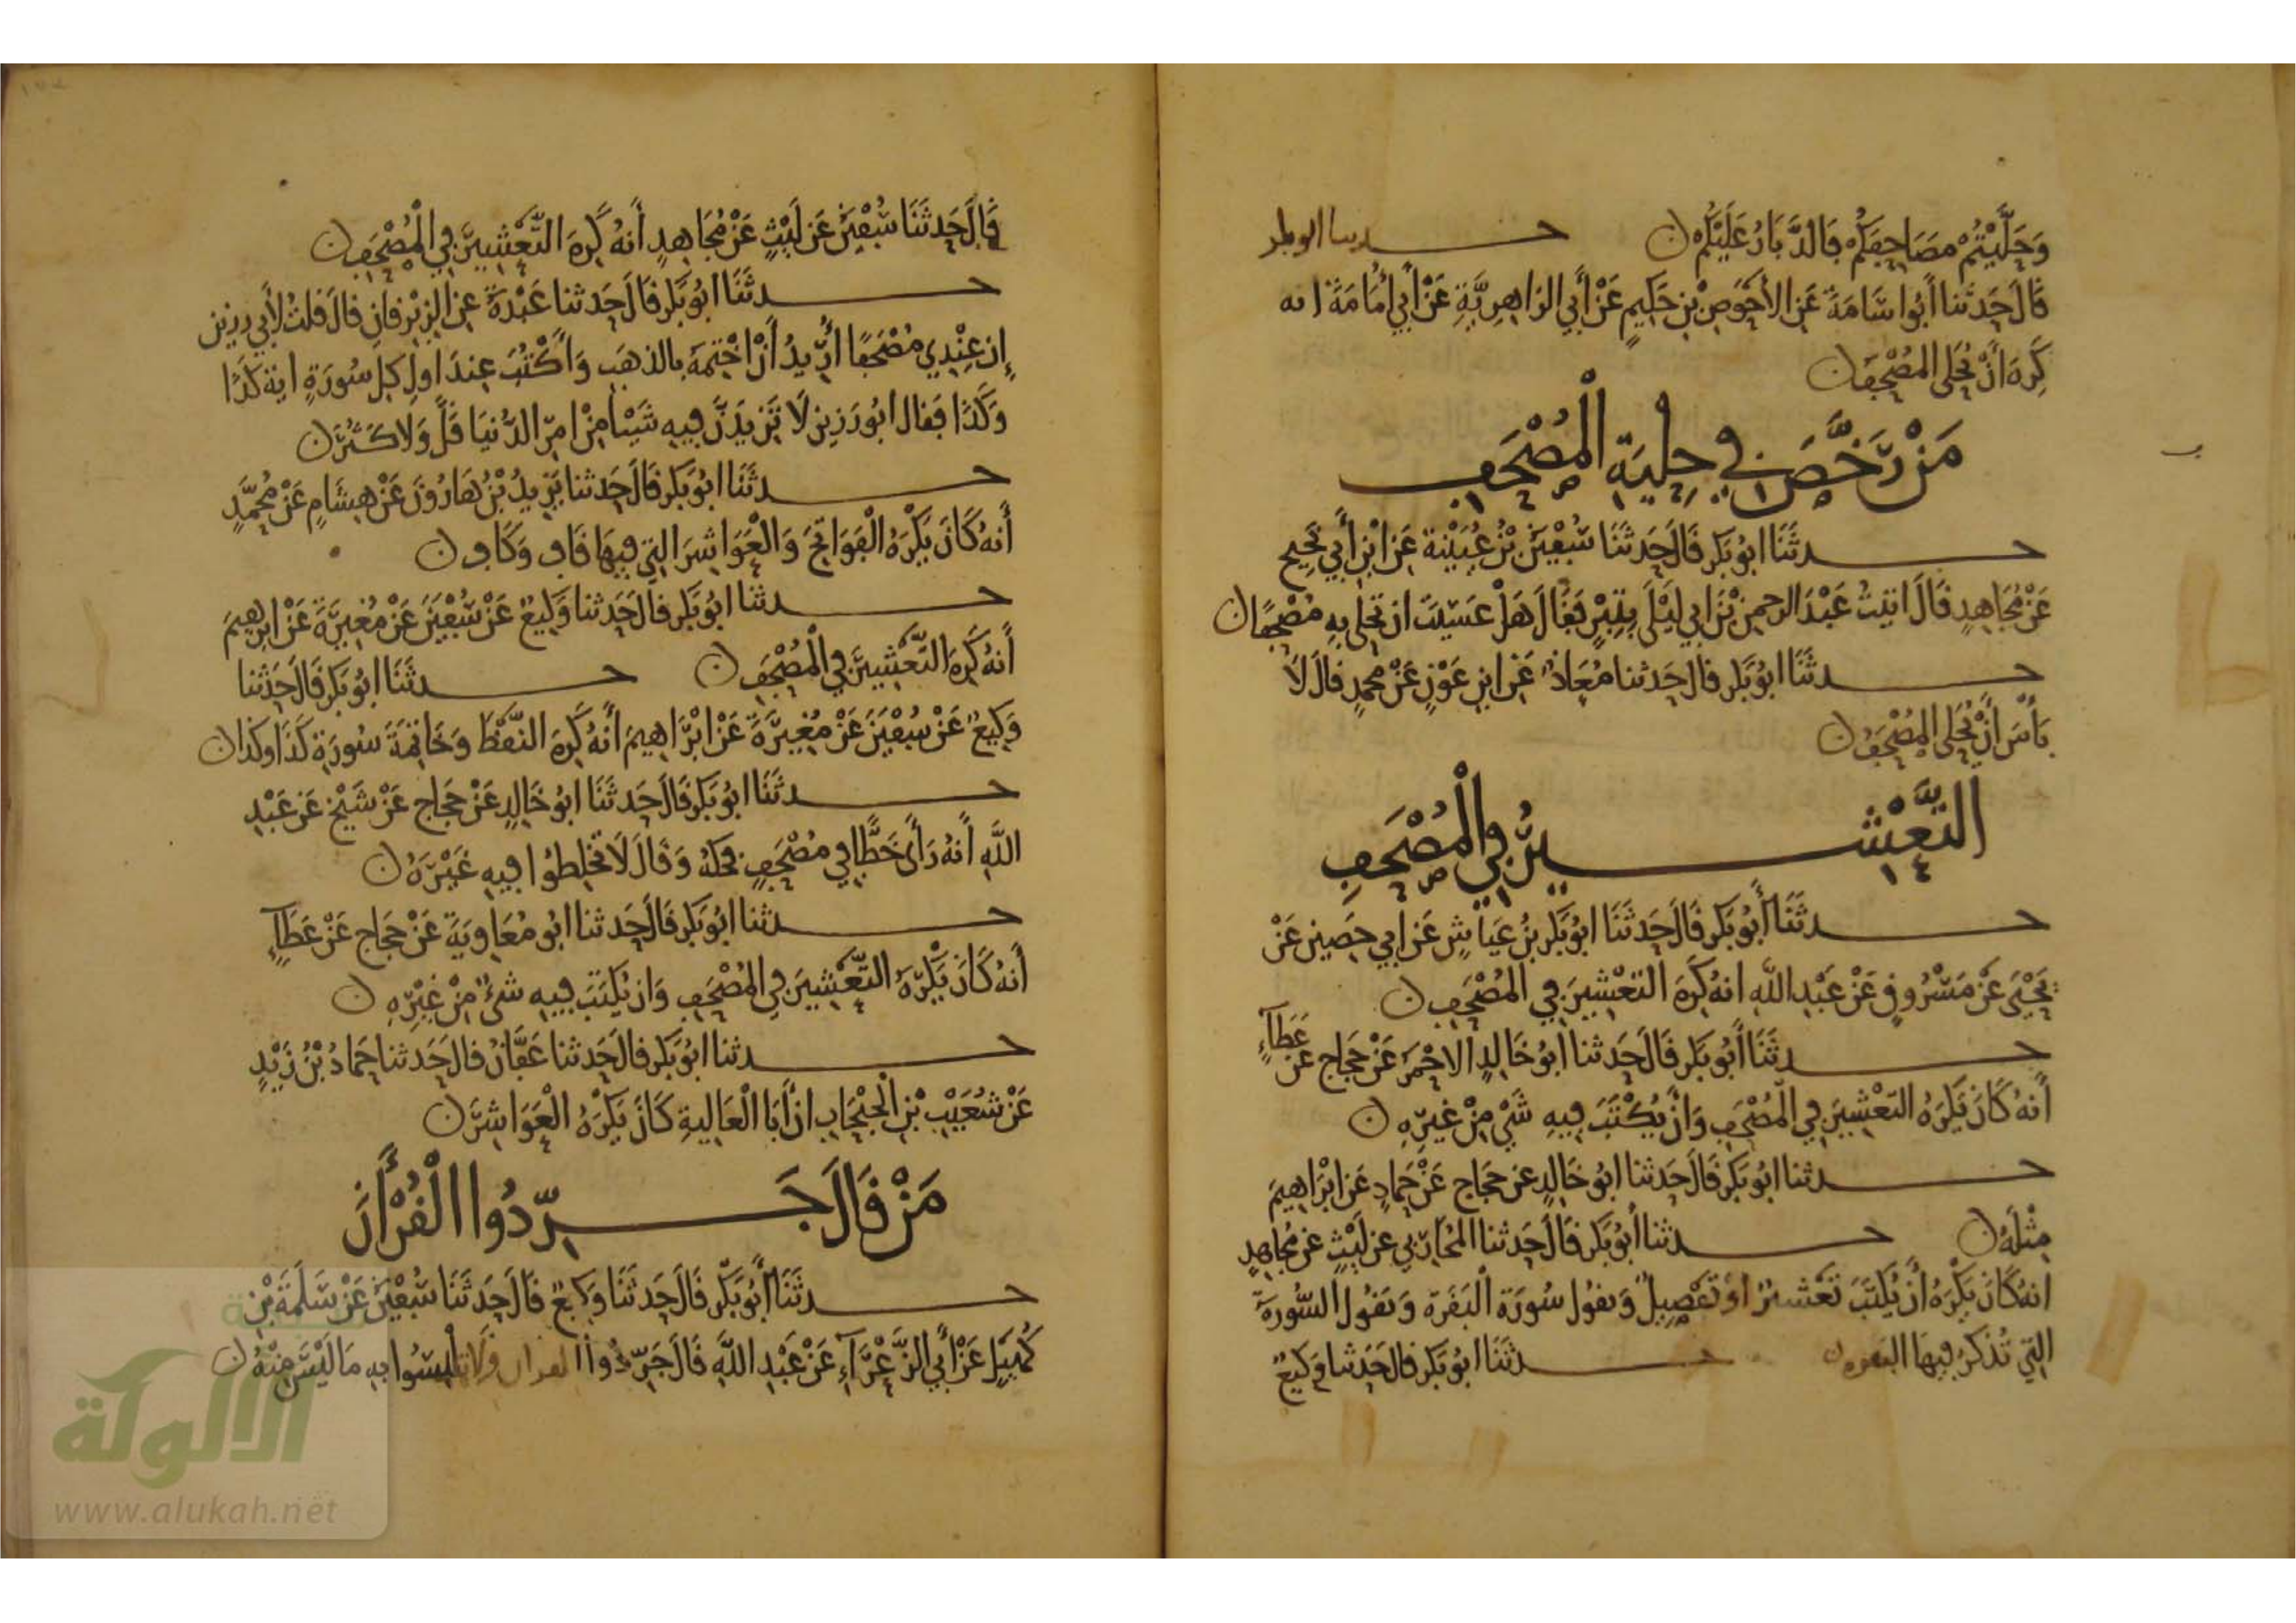 وَحَلَّيْتُمْ مَصَاحِفَكُمْ فَالدَّبَارُ عَلَيْكُمْ ن حدثنا ابو بكر
قَالَ حَدثَنا أَبُوا سَامَةَ عَن الأَحْوَصِ بْنِ حَكِيمٍ عَنْ أَبِي الزاهِرِيَّةِ عَنْ أَبِي أُمَامَةَ انه
كَرِهَ أَنْ تُحَلَى المُصْحَفَ ن
مَنْ رَخَّصَ فِي حِلْيَةِ الْمُصْحَفِ
حدثَنَا ابُو بَكر قَالَ حَدثَنَا سُفْيَنُ بْنُ عُيَيْنة عَن ابْنِ أَبِي نَجِيحٍ
عَنْ مُجَاهِدٍ قَالَ اتيتُ عَبْدَ الرحمن بْنَ ابي لَيْلَى بِتِبْرٍ فَقَالَ هَلْ عَسَيْتَ ان تحلي بِهِ مُصْحَفًا ن
حدثَنَا ابُو بَكر قال حَدثنا مُعَاذٌ عَن ابنِ عَوْنٍ عَنْ محمدٍ قالَ لَا
بَأْسَ أَنْ تُحَلى المُصْحَفُ ن
التَّعْشِيرُ فِي الْمُصْحَفِ
حدثَنَا أَبُو بَكر قَالَ حَدثَنَا ابُو بَكر بْنُ عَيَاشٍ عَن ابي حَصِينٍ عَنْ
يَحْيَى عَنْ مَسْرُوقٍ عَنْ عَبْدِ اللَّهِ انهُ كَرِهَ التعْشِيرَ فِي المُصْحَفِ ن
حدثَنَا أَبُو بَكر قَالَ حَدثنا ابُو خَالِدٍ الاحْمَرُ عَنْ حَجاجٍ عَنْ عَطَآءٍ
أَنهُ كَانَ يَكْرَهُ التعْشِيرَ فِي الْمُصْحَفِ وَانْ يُكْتَبَ فِيهِ شَيْ مِنْ غَيْرِهِ ن
حدثنا ابُو بَكر قَالَ حَدثنا ابُو خَالِدٍ عن حجاجٍ عَنْ حَمادٍ عَن ابْرَاهِيمَ
مِثْلَهُ ن حدثنا أَبُو بَكر قَالَ حَدثنا المُحَارِبي عن لَيْثٍ عن مُجاهِدٍ
انهُ كَانَ يَكْرَهُ أَنْ يُكْتَبَ تَعْشيرٌ اوْ تَفْصِيلٌ وَيقُول سُورَة الْبَقَرَة وَيقُول السُّورَةَ
التِي تُذكَرُ فِيهَا البقره ن حدثَنَا ابُو بَكر قال حَدثنا وَكيعٌ
قَالَ حَدثَنَا سُفْيَنُ عَن لَيْثٍ عَنْ مُجَاهِدٍ أَنهُ كَرِهَ التَّعْشِيرَ فِي الْمُصْحَفِ ن
حدثَنَا ابُو بَكر قَالَ حَدثنا عَبْدَةُ عَنِ الزبْرقانِ قالَ قلتُ لأَبي رزينٍ
إِن عِنْدِي مُصْحَفًا أُرِيدُ أَنْ اخْتِمَهُ بِالذهَبِ وَأَكْتُبَ عِندَ اولِ كلِ سُورَةٍ اية كَذَا
وَكَذَا فَقالَ ابُو رَزينٍ لَا تَزيدَنَّ فِيهِ شَيْئا مِنْ امرِ الدُّنيَا قَلَّ وَلَا كَثُرَ ن
حدثَنَا ابُو بَكر قَالَ حَدثنا يَزيدُ بْنُ هَارُونَ عَنْ هِشَامٍ عَنْ مُحَمَّدٍ
أَنهُ كَانَ يَكْرَهُ الْفَوَاتِحَ وَالْعَوَاشِرَ التي فِيهَا قَاف وَكَاف ن
حدثنا ابُو بَكر قَالَ حَدثنا وَكِيعٌ عَنْ سُفْيَنَ عَنْ مُغِيرَةَ عَنْ ابرهِيمَ
أَنهُ كَرِهَ التَّعْشِيرَ فِي الْمُصْحَفِ ن حدثَنَا ابُو بَكر قَالَ حَدثنا
وَكِيعٌ عَنْ سُفْيَنَ عَنْ مُغِيرَةَ عَنْ ابْرَاهِيمَ أَنهُ كَرِهَ النَّقْطَ وَخَاتِمَةَ سُورَةِ كَذَا وَكذا ن
حدثَنَا ابُو بَكر قَالَ حَدثَنَا ابُو خَالِدٍ عَنْ حَجَاجٍ عَنْ شَيْخٍ عَن عَبْدِ
اللَّهِ أَنهُ رَأَى خَطًّا فِي مُصْحَفٍ فحكهُ وَقَالَ لَا تخلِطوُا فِيهِ غَيْرَهُ ن
حدثنا ابُو بَكر قَالَ حَدثنا ابُو مُعَاوِيَةَ عَنْ حجَاجٍ عَنْ عَطَآءٍ
أَنهُ كَانَ يَكْرَهُ التَّعْشِيرَ فِي المُصْحَفِ وَان يُكتَبَ فِيهِ شَيْءٌ مِنْ غَيْرِهِ ن
حدثنا ابُو بَكر قالَ حَدثنا عَفَّانُ قالَ حَدثنا حَمادُ بْنُ زَيْدٍ
عَنْ شُعَيْبِ بْنِ الْحَبْحَابِ انَّ أَبَا الْعَالِيةِ كَانَ يَكْرَهُ الْعَوَاشِرَ ن
مَنْ قَالَ جَرِّدُوا الْقُرْأَنَ
حدثَنَا أَبُو بَكْر قَالَ حَدثَنَا وَكِيعٌ قَالَ حَدثَنَا سُفْيَنُ عَنْ سَلَمَةَ بْنِ
كُهَيْلٍ عَنْ أَبِي الزَّعْرَآءِ عَنْ عَبْدِ اللَّهِ قَالَ جَرِّدُوا القران وَلَا تلبسُوا بِهِ مَا لَيْسَ مِنْهُ ن
الألوكة
www.alukah.net